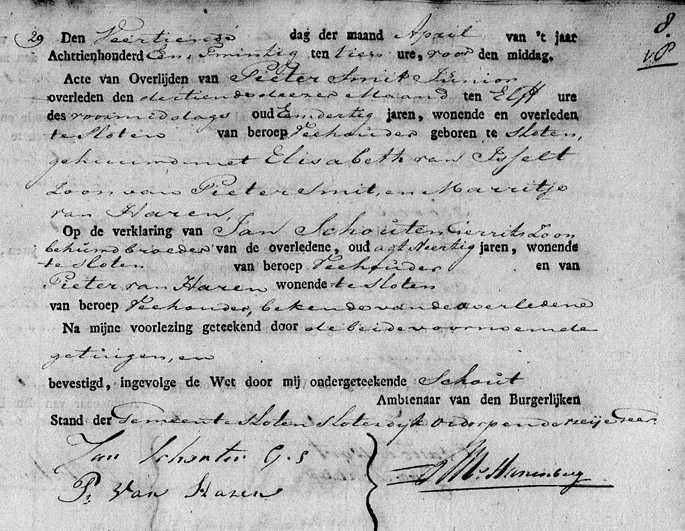 8.
vP
29 Den Veertiende dag der maand April van 't jaar
Achttienhonderd Een, Twintig ten tien ure, voor den middag,
Acte van Overlijden van Pieter Smit Junior
overleden den dertiende deezer Maand ten Elff ure
des voormiddags oud Eendertig jaren, wonende en overleden
te Sloten van beroep Veehouder geboren te Sloten,
gehuwd met Elisabeth van Isselt
Zoon van Pieter Smit, en Marritje
van Haren,
Op de verklaring van Jan Schouten Gerrits Zoon
behuwdbroeder van de overledene, oud agt Veertig jaren, wonende
te Sloten van beroep Veehouder en van
Pieter van Haren wonende te Sloten
van beroep Veehouder, bekende van de overledene
Na mijne voorlezing geteekend door de beide voornoemde
getuigen, en
bevestigd, ingevolge de Wet door mij ondergeteekende Schout
Ambtenaar van den Burgerlijken
Stand der Gemeente Sloten Sloterdijk Osdorp en de
Jan Schouten G.s
P. Van Haren